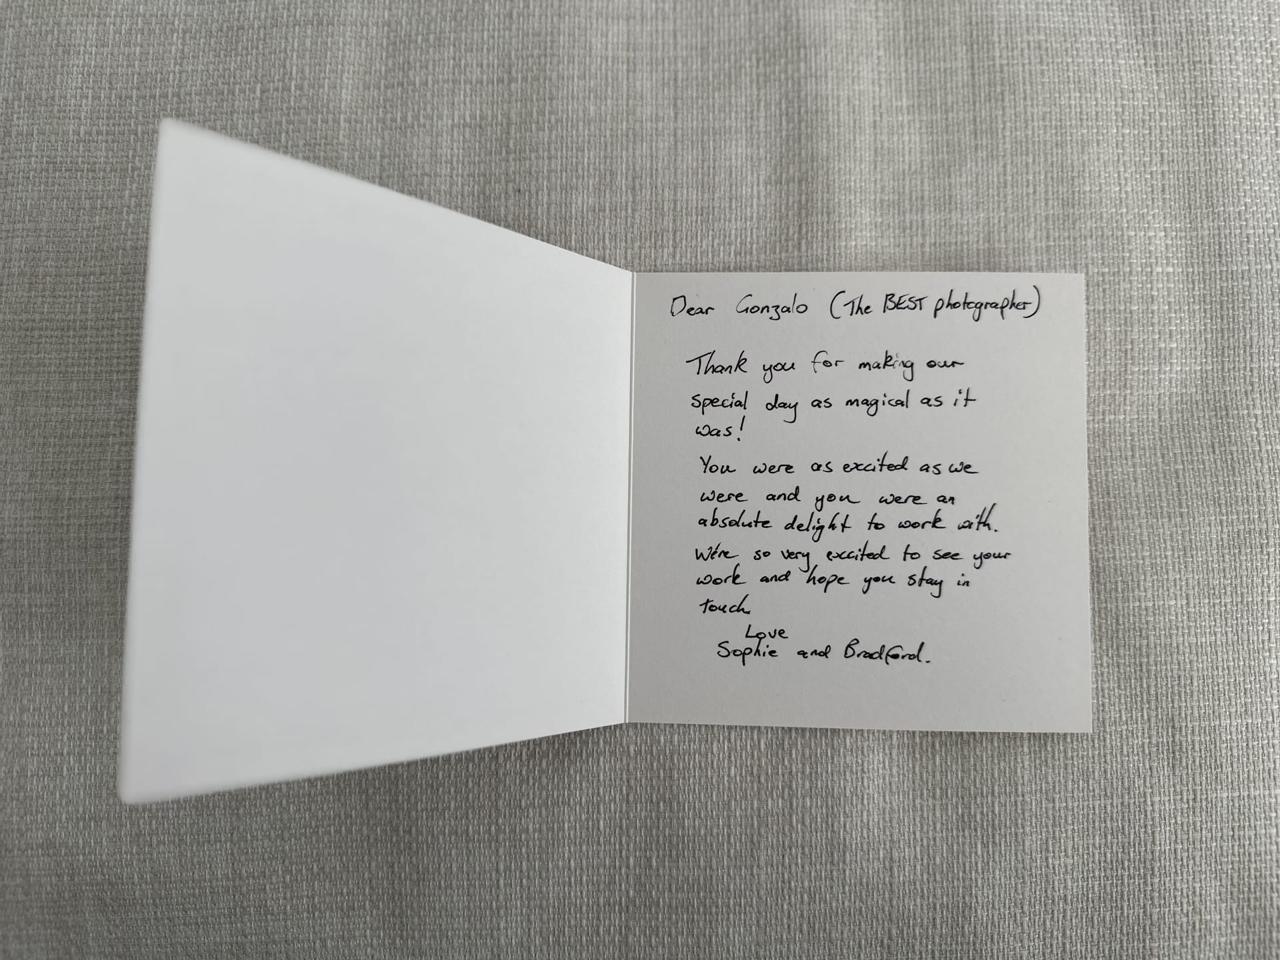 Dear Gonzalo (The BEST photographer)
Thank you for making our
special day as magical as it
was!
You were as excited as we
were and you were an
absolute delight to work with.
We're so very excited to see your
work and hope you stay in
touch.
Love
Sophie and Bradford.